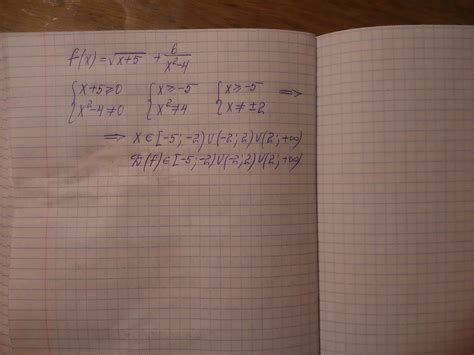 f(x)=√x+5 + 6/x²-4
{x+5≥0 {x≥-5 {x≥-5 ⇒
{x²-4≠0 {x²≠4 {x≠±2
⇒ x∈[-5;-2)∪(-2;2)∪(2;+∞)
D(f)∈[-5;-2)∪(-2;2)∪(2;+∞)